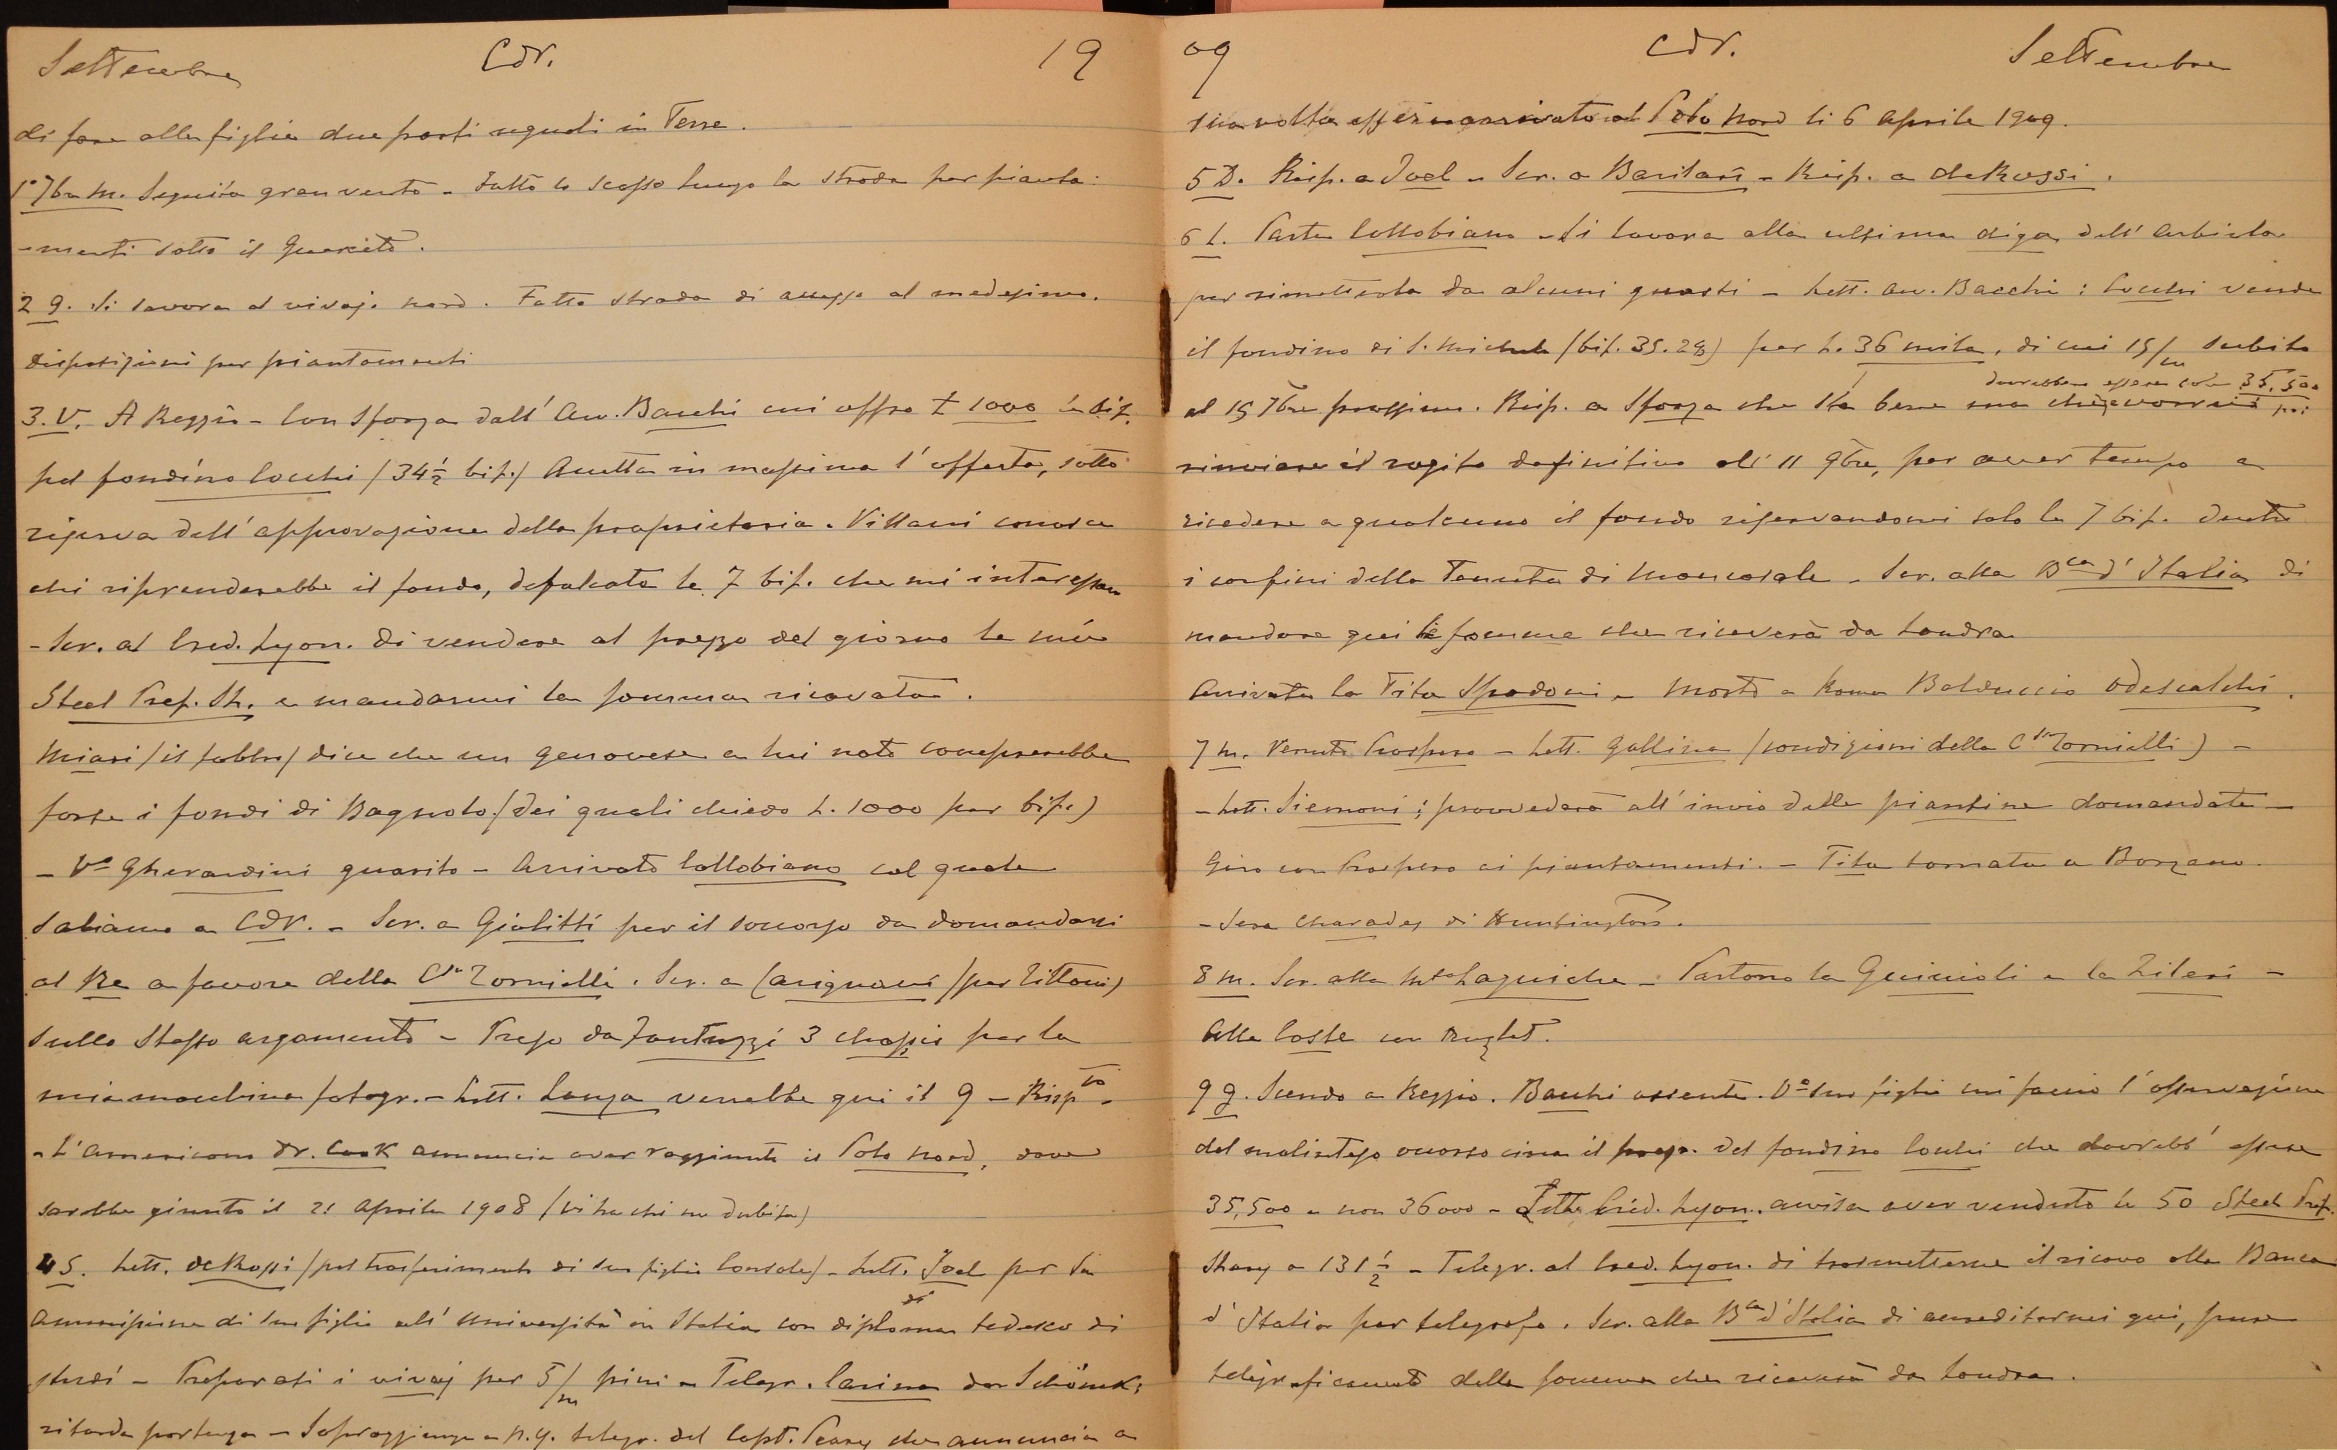 Settembre CdV. 19
di fare alle figlie due parti uguali in Terre.
1° 7bre M. Seguita gran vento - Fatto lo scasso lungo la strada per pianta-
-menti sotto il Querceto.
2 G. Si lavora al vivajo nord. Fatta strada di accesso al medesimo.
disposizioni per piantamenti
3. V. A Reggio - Con Sforza dall' Avv. Bacchi cui offro £ 1000 la bif.
pel fondino Locchi (34½ bif.) Accetta in massima l'offerta, sotto
riserva dell'approvazione della proprietaria. Villani conosce
chi riprenderebbe il fondo, defalcate le 7 bif. che mi interessan
- Scr. al Cred. Lyon. di vendere al prezzo del giorno le mie
Steel Pref. Sh. e mandarmi la somma ricavata.
Miari (il fabbro) dice che un genovese a lui noto comprerebbe
forse i fondi di Bagnolo (dei quali chiedo L. 1000 per bif.)
- V° Gherardini guarito - Arrivato Collobiano col quale
saliamo a CdV. - Scr. a Giolitti per il soccorso da domandarsi
al Re a favore della Cssa Tornielli. Scr. a Carignani (per Tittoni)
sullo stesso argomento - Preso da Fantuzzi 3 chassis per la
mia macchina fotogr. - Lett. Lanza verrebbe qui il 9 - Rispto -
- L'americano Dr. Cook annuncia aver raggiunto il Polo Nord, dove
sarebbe giunto il 21 Aprile 1908 (vi ha chi ne dubita)
4 S. Lett. de Rossi (pel trasferimento di suo figlio Console) - Lett. Joel per la
ammissione di suo figlio all' Università in Italia con diploma tedesco di
studi - Preparati i vivaj per 5/m pini - Telegr. Carina da Schönek:
ritarda partenza - Sopraggiunge a N.Y. telegr. del Capt. Peary che annuncia a
09 CdV. Settembre
sua volta essere arrivato al Polo Nord li 6 Aprile 1909.
5 D. Risp. a Joel - Scr. a Barilari - Risp. a de Rossi.
6 L. Parte Collobiano - Si lavora alla ultima diga dell'
per rimetterla da alcuni guasti - Lett. avv. Bacchi: Locchi vende
il fondino di S. Michele (bif. 35.28) per L. 36 mila, di cui 15/m subito
dovrebbero essere solo 35.500
al 15 7bre prossimo. Risp. a Sforza che sta bene ma che vorrei poi
rinviare il rogito definitivo all' 11 9bre, per aver tempo a
ricedere a qualcuno il fondo riservandomi solo le 7 bif. dentro
i confini della Tenuta di Moncasale - Scr. alla Bca d'Italia di
mandare qui le somme che riceverà da Londra
Arrivata la Tita Spadoni - Morto a Roma Balduccio Odescalchi.
7 M. Venuto Prospero - Lett. Gallina (condizioni della Cssa Tornielli) -
- Lett. Siemoni: provvederà all'invio delle piantine domandate -
Giro con Prospero ai piantamenti. - Tita tornata a Borzano.
- Sera charades di Huntington.
8 M. Scr. alla Mse Laguiche - Partono la Guiccioli e la Zileri -
Alle Coste con
9 G. Scendo a Reggio. Bacchi assente. V° suo figlio cui faccio l'osservazione
del malinteso occorso circa il prezzo del fondino Locchi che dovrebb' essere
35,500 e non 36000 - Lett. Créd. Lyon. avvisa aver venduto le 50 Steel Pref.
Shares a 131½ - Telegr. al Cred. Lyon. di trasmetterne il ricavo alla Banca
d'Italia per telegrafo. Scr. alla Bca d'Italia di accreditarmi qui, pure
telegraficamente della somma che riceverà da Londra.